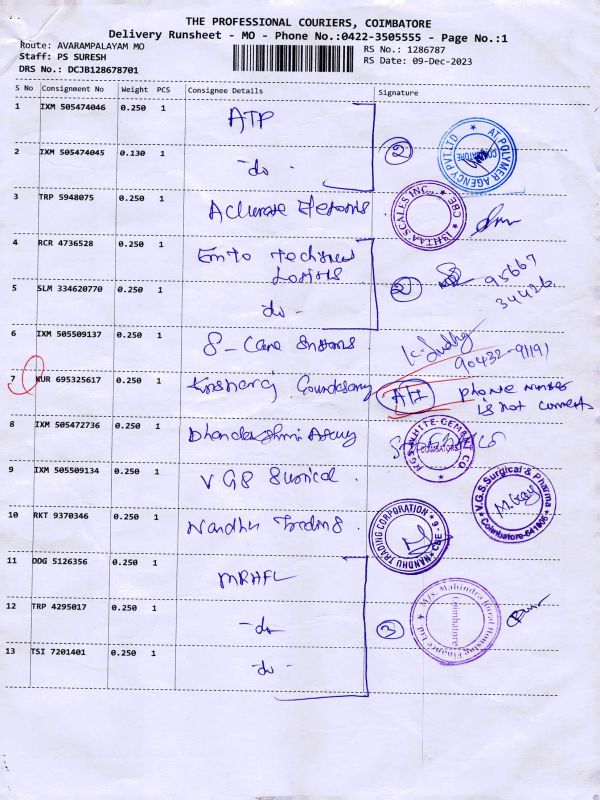 THE PROFESSIONAL COURIERS, COIMBATORE
Delivery Runsheet - MO - Phone No.:0422-3505555 - Page No.:1
Route: AVARAMPALAYAM MO
RS No.: 1286787
Staff: PS SURESH
RS Date: 09-Dec-2023
DRS No.: DCJB128678701
S No Consignment No Weight PCS Consignee Details Signature
1 IXM 505474046 0.250 1 ATP
2 AI POLYMER AGENCY PVT LTD
2 IXM 505474045 0.130 1 -do-
3 TRP 5948075 0.250 1
ISHTAA SCALES INC. CBE
4 RCR 4736528 0.250 1
2 95667
34426
5 SLM 334620770 0.250 1 -do-
6 IXM 505509137 0.250 1 S-Cane
90432-91191
7 KUR 695325617 0.250 1
phone number
is not correct
8 IXM 505472736 0.250 1 Dhanalakshmi
WHITE CEMENT CO COIMBATORE
9 IXM 505509134 0.250 1 VGS Surgical
V.G.S. Surgical & Pharma Coimbatore-641006
10 RKT 9370346 0.250 1 Nandhu Trading
NANDHU TRADING CORPORATION CBE - 6
11 DDG 5126356 0.250 1 MRHFL
M/s. Mahindra Rural Housing Finance Ltd. Coimbatore
12 TRP 4295017 0.250 1 -do-
3
13 TSI 7201401 0.250 1 -do-